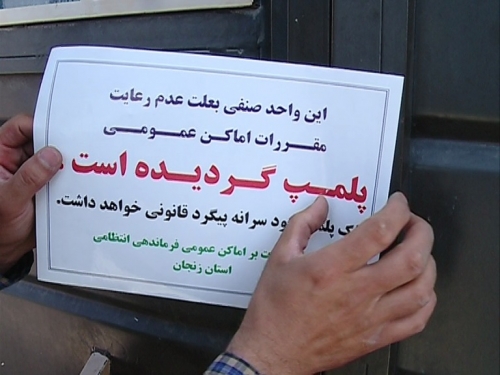 این واحد صنفی بعلت عدم رعایت
مقررات اماکن عمومی
پلمپ گردیده است .
سرانه پیگرد قانونی خواهد داشت.
بر اماکن عمومی فرماندهی انتظامی
استان زنجان